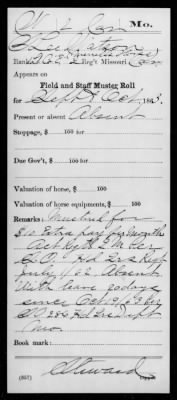 Mo.
Rank Reg't Missouri Cav
Appears on
Field and Staff Muster Roll
for Sept & Oct, 186 3.
Present or absent Absent
Stoppage, $ 100 for
Due Gov't, $ 100 for
Valuation of horse, $ 100
Valuation of horse equipments, $ 100
Remarks: Mustered for
$10 Extra pay per month
Act
July 1/62 Absent
With leave 20 days
since Oct 19/62 by
SO 286 Hd Qrs Dept
Mo.
Book mark:
Steward
(857) Copyist.